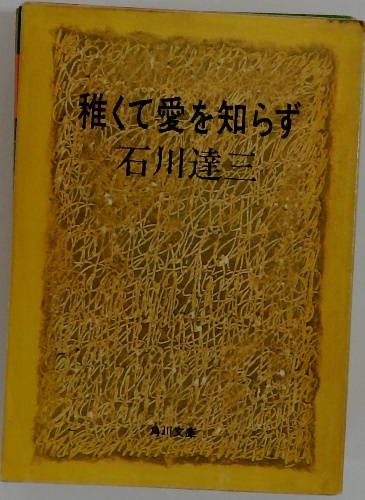 稚くて愛を知らず
石川達三
角川文庫